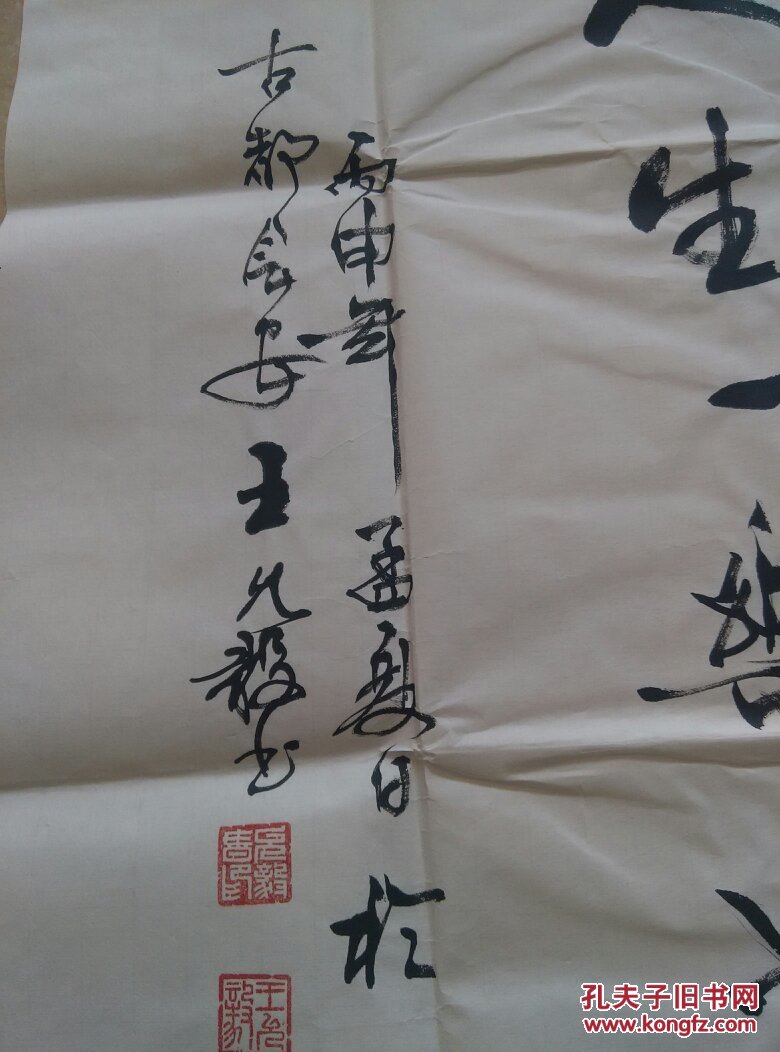 生
丙申年孟夏日於
古都长安王允毅书
允毅書印
孔夫子旧书网
www.kongfz.com